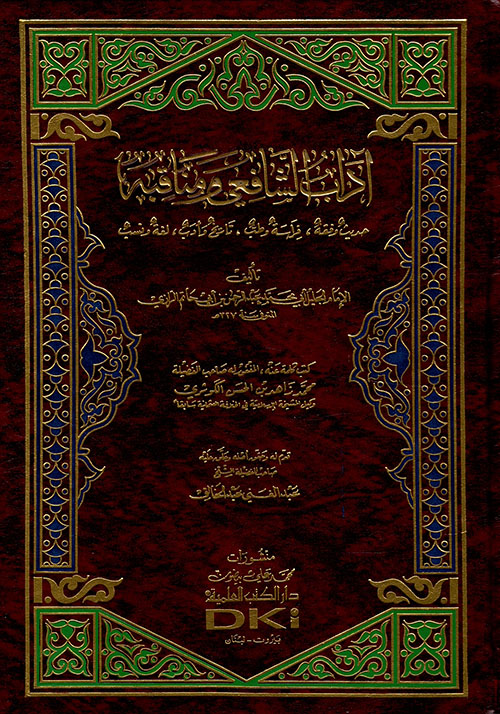 آداب الشافعي ومناقبه
حديث وفقه ، فراسة وطب ، تاريخ وأدب ، لغة ونسب
تأليف
الإمام الجليل أبي محمد عبد الرحمن بن أبي حاتم الرازي
المتوفى سنة ٣٢٧هـ
كتب كلمة عنه، المغفور له صاحب الفضيلة
محمد زاهد بن الحسن الكوثري
وكيل المشيخة الإسلامية في الخلافة العثمانية سابقا
قدم له وحقق أصله وعلق عليه
صاحب الفضيلة الشيخ
عبد الغني عبد الخالق
منشورات
محمد علي بيضون
دار الكتب العلمية
DKi
بيروت - لبنان